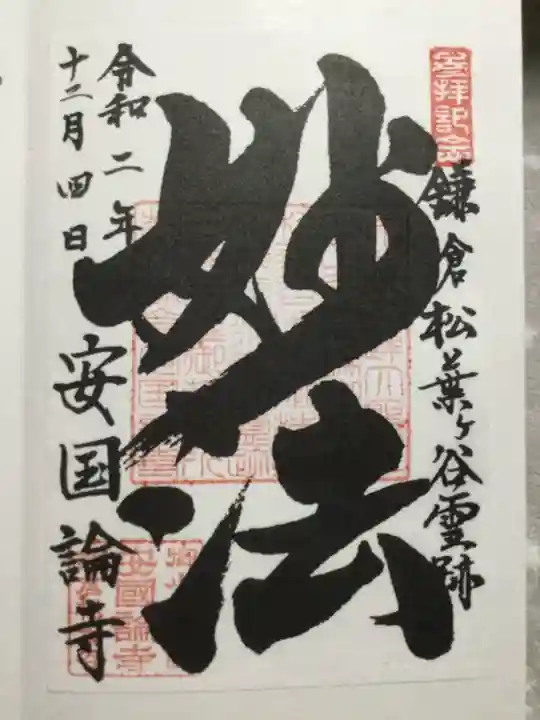 参拝記念
鎌倉松葉ヶ谷霊跡
妙法
令和二年
十二月四日
安国論寺
安國論寺